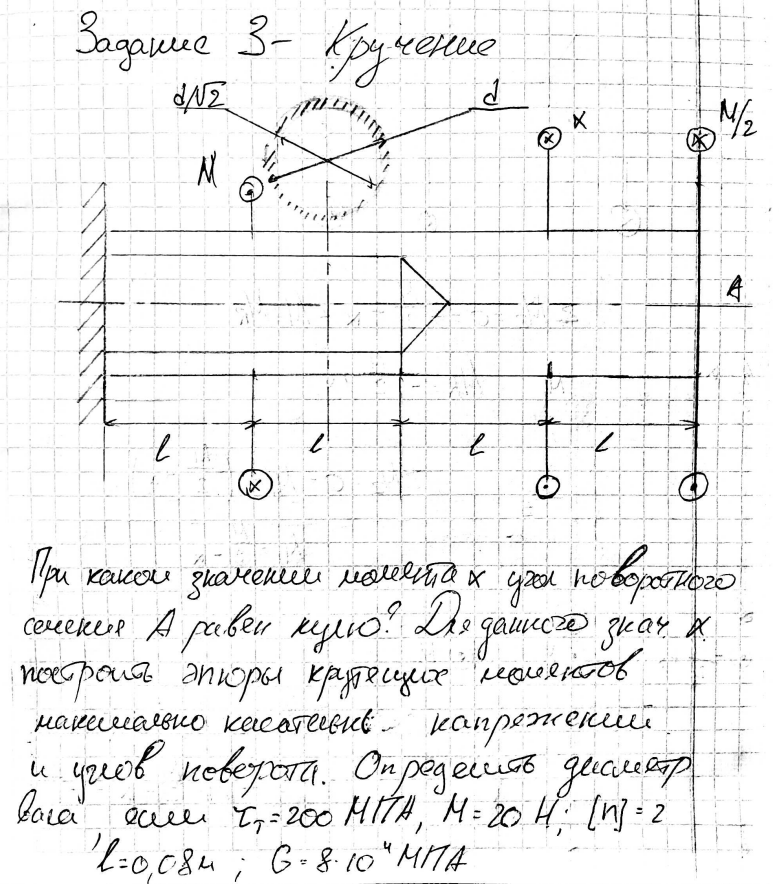 Задание 3- Кручение
d/√2
d
M
x
M/2
A
l
l
l
l
При каком значении момента x угол поворотного
сечения A равен нулю? Для данного знач x
построить эпюры крутящих моментов
максимально касательн. напряжений
и углов поворота. Определить диаметр
вала если τт=200 МПА, M=20 Н; [n]=2
l=0,08м; G=8·10⁴ МПА